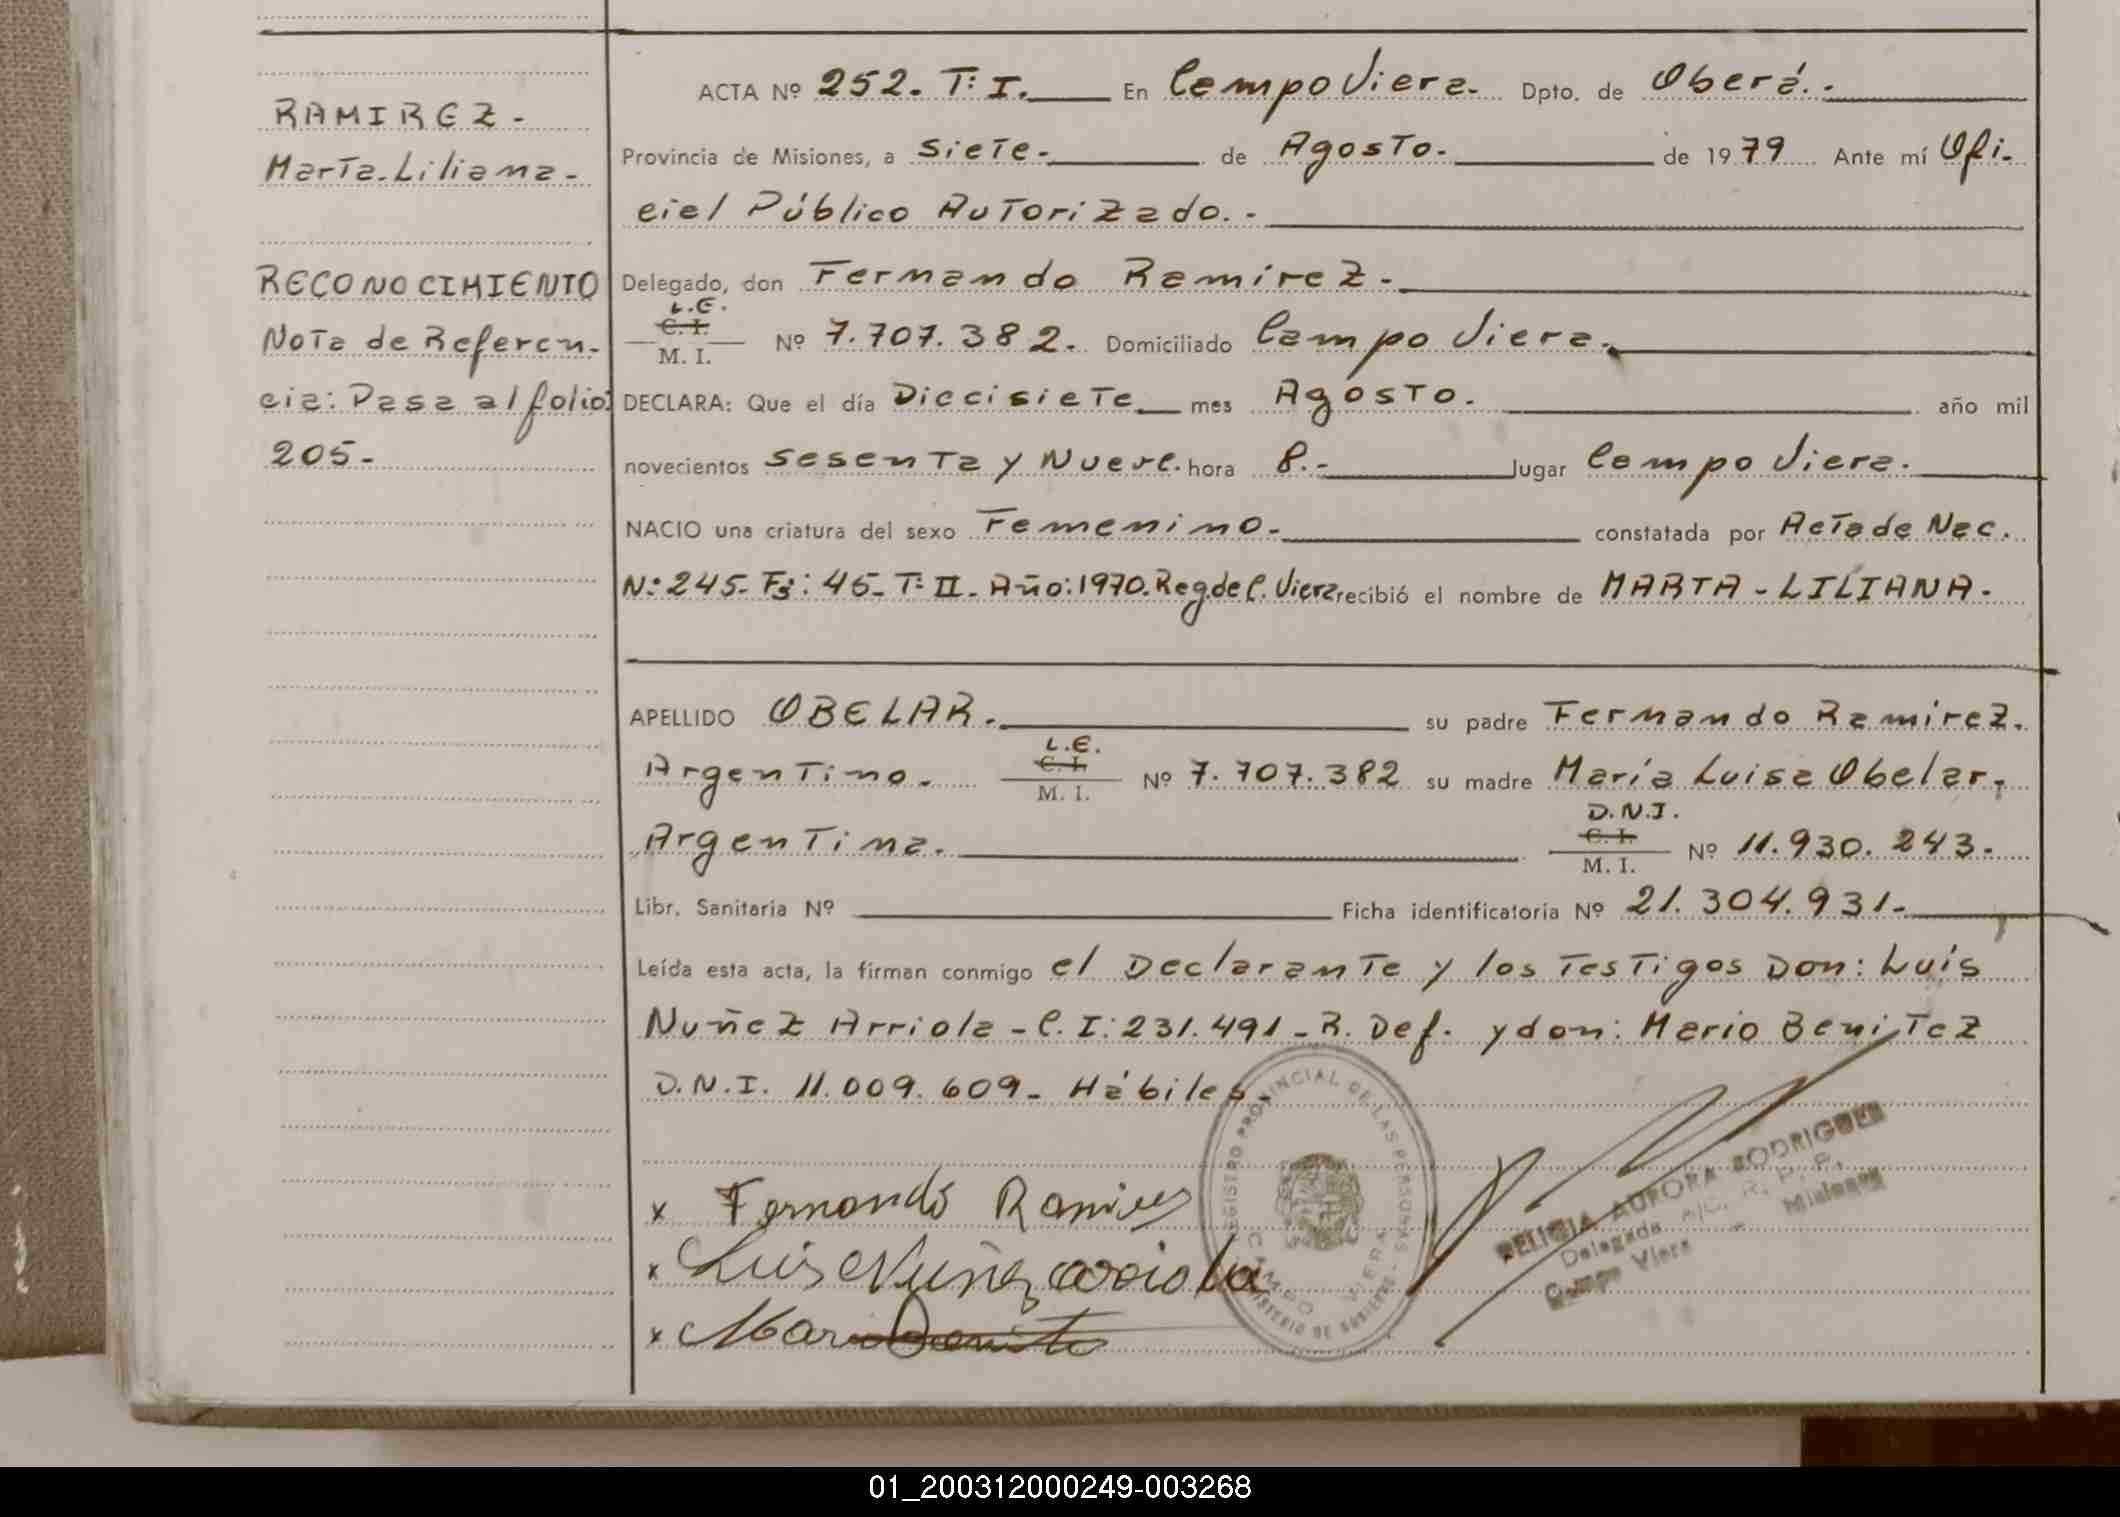 RAMIREZ.-
Marta.Liliana.-
RECONOCIMIENTO
Nota de Referen-
cia: Pasa al folio:
205.-
ACTA Nº 252. T: I. En Campo Viera. Dpto. de Oberá.-
Provincia de Misiones, a Siete. de Agosto. de 1979 Ante mí Ofi-
cial Público Autorizado.-
Delegado, don Fernando Ramírez.-
L.E.
C. I.
M. I. Nº 7.707.382. Domiciliado Campo Viera.
DECLARA: Que el día Diecisiete mes Agosto. año mil
novecientos sesenta y Nueve. hora 8.- lugar Campo Viera.
NACIO una criatura del sexo Femenino. constatada por Acta de Nac.
N: 245- Fs: 45- T: II- Año: 1970. Reg. de C. Viera recibió el nombre de MARTA - LILIANA.
APELLIDO OBELAR. su padre Fernando Ramírez.
L.E.
C. I.
Argentino.- M. I. Nº 7.707.382 su madre María Luisa Obelar,
D.N.I.
C. I.
Argentina. M. I. Nº 11.930.243.
Libr. Sanitaria Nº Ficha identificatoria Nº 21.304.931.-
Leída esta acta, la firman conmigo el Declarante y los Testigos Don: Luis
Nuñez Arriola - C. I: 231.491 - R. Def. y don: Mario Benitez
D.N.I. 11.009.609- Hábiles.
x Fernando Ramires
x Luis Nuñez arriola
x Mario Benite
REGISTRO PROVINCIAL DE LAS PERSONAS
CAMPO VIERA
MINISTERIO DE GOBIERNO
DELICIA AURORA RODRIGUEZ
Delegada A/C. R. P. P.
Campo Viera - Misiones
01_200312000249-003268